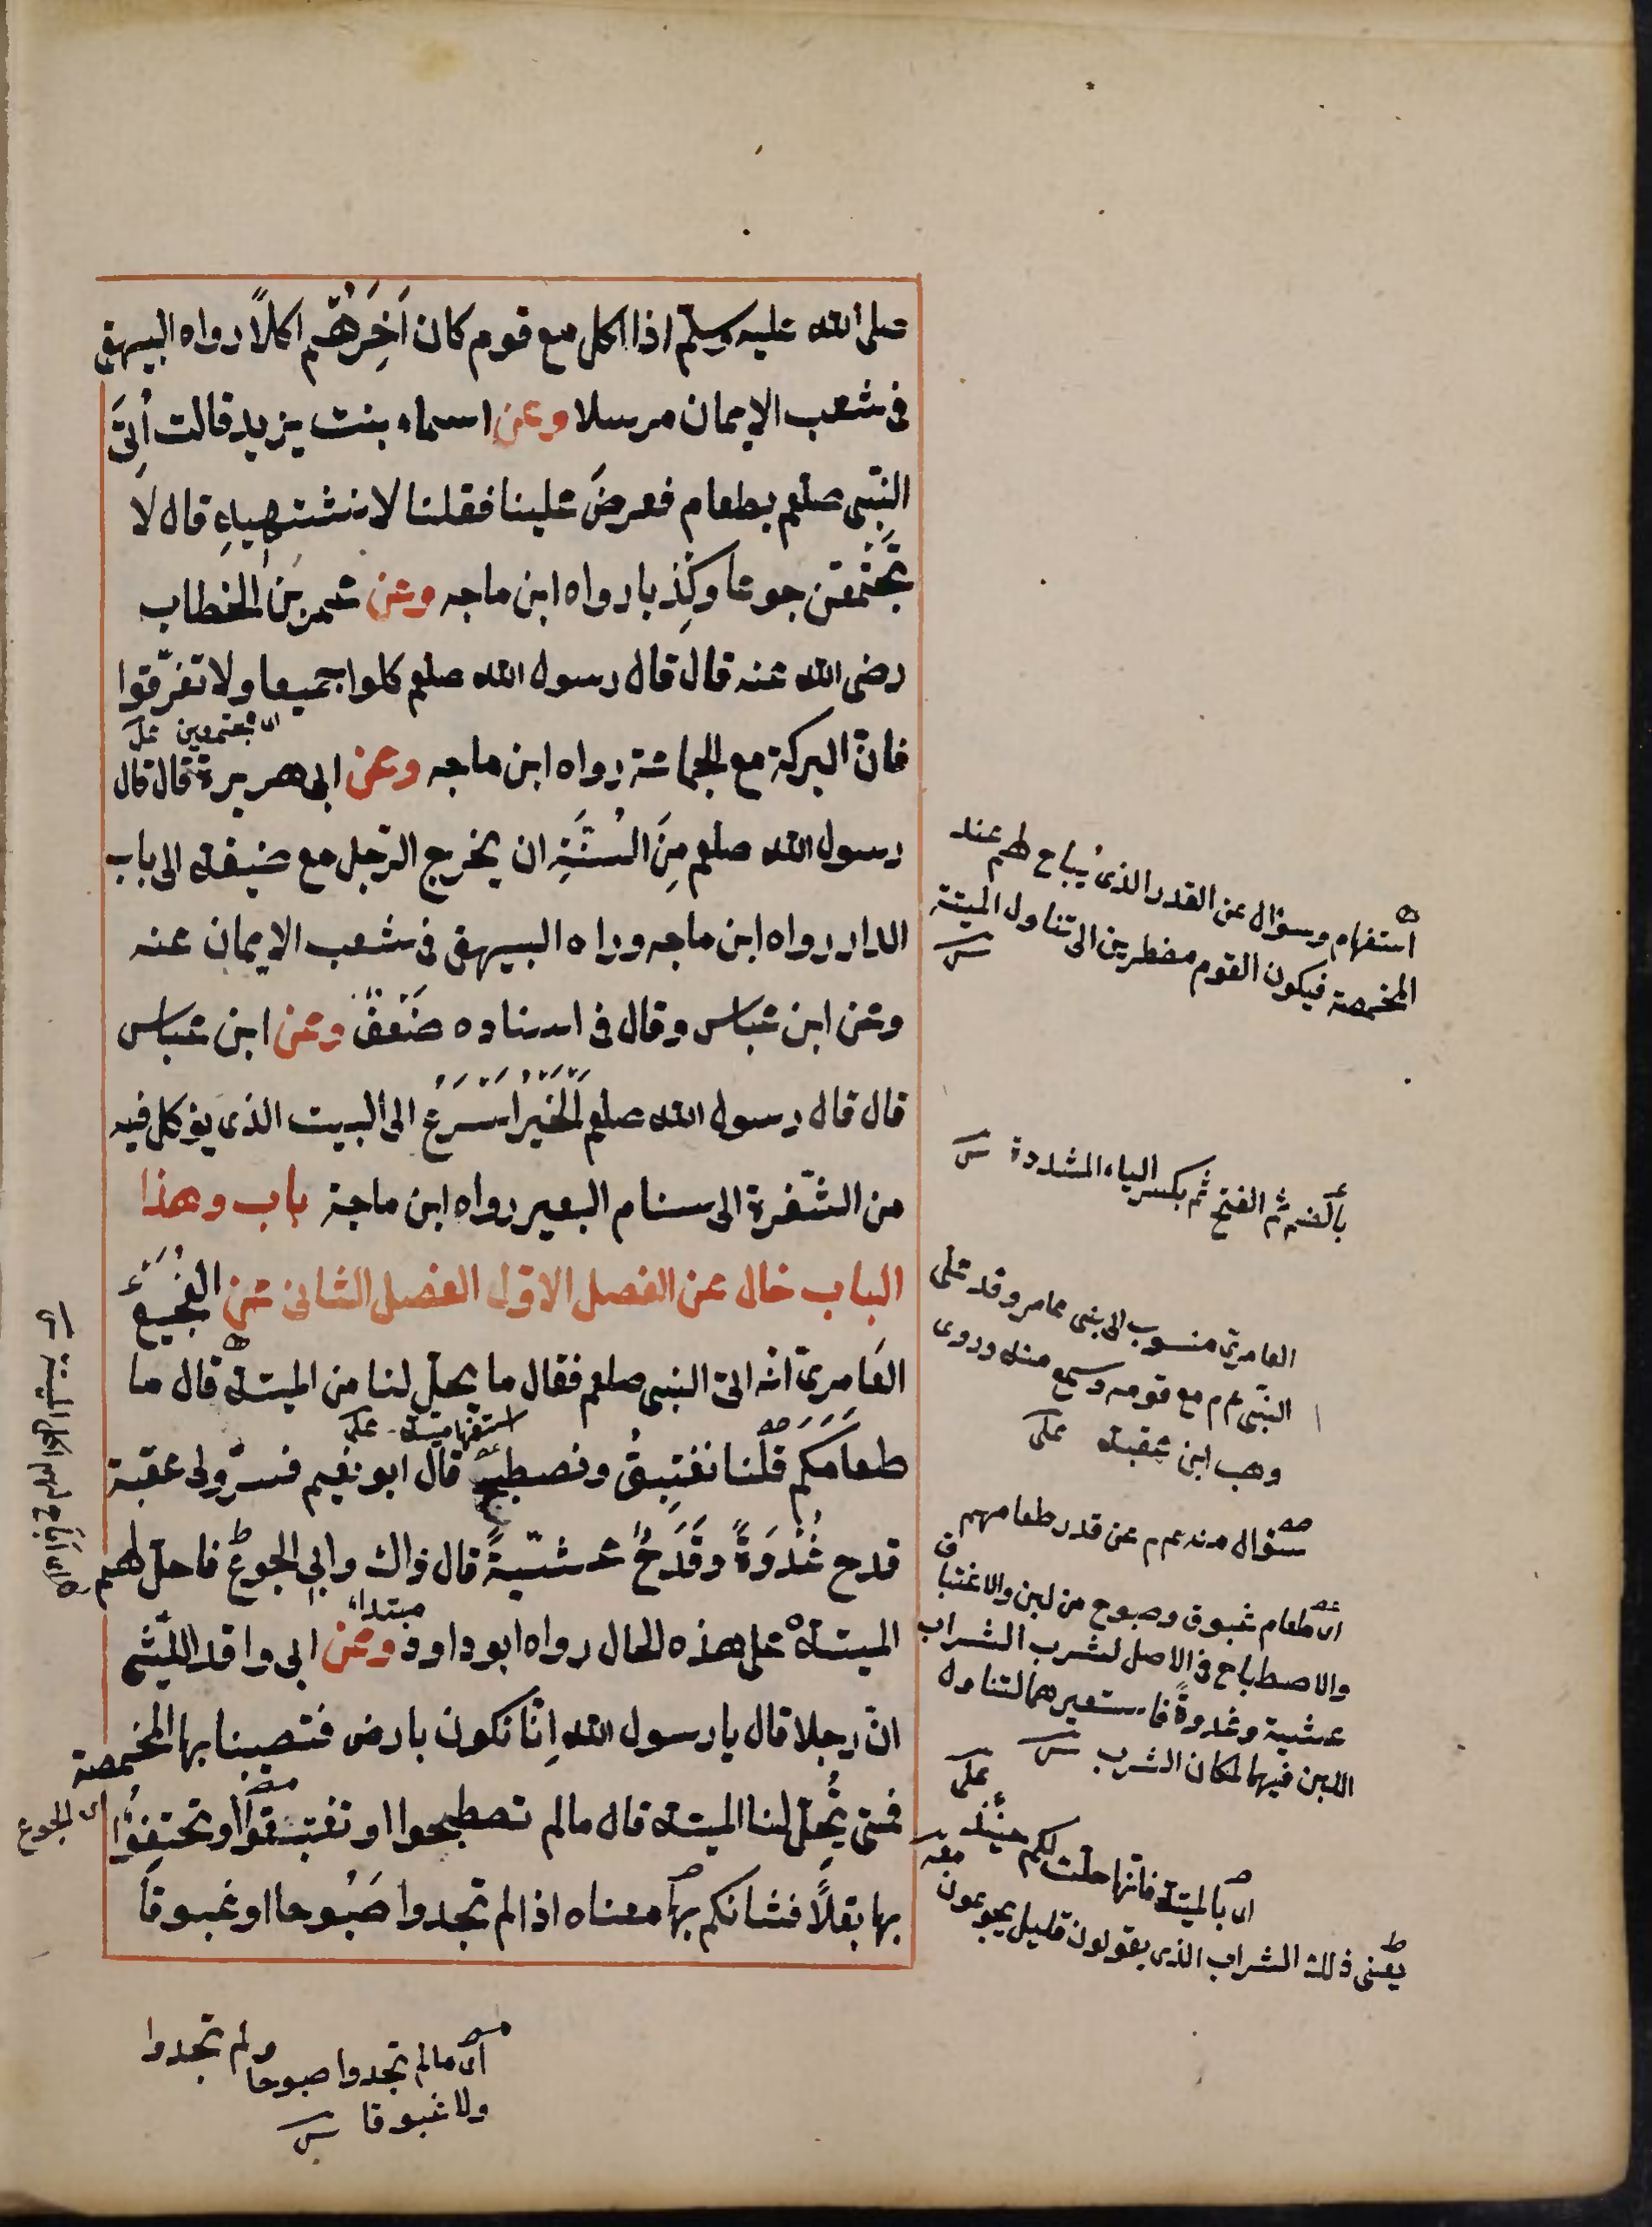 صلى الله عليه وسلم اذا اكل مع قوم كان اَخِرَهُم اكلاً رواه البيهقى
فى شعب الايمان مرسلا وعن اسماء بنت يزيد قالت اُتِىَ
النبى صلعم بطعام فعرضَ علينا فقلنا لا نشتهيه قال لا
تجتمعن جوعا وكِذبا رواه ابن ماجه وعن عمر بن الخطاب
رضى الله عنه قال قال رسول الله صلعم كلوا جميعا ولا تفرّقوا
اى مجتمعين على
فانّ البركة مع الجماعة رواه ابن ماجه وعن ابى هريرة قال قال
رسول الله صلعم مِنَ السُّنَّةِ ان يخرج الرّجل مع ضيفه الى باب
الدار رواه ابن ماجه ورواه البيهقى فى شعب الايمان عنه
وعن ابن عباس وقال فى اسناده ضَعْفٌ وعن ابن عباس
قال قال رسول الله صلعم اَلْخَيْرُ اَسْرَعُ الى البيت الذى يؤكل فيه
من الشّفرة الى سنام البعير رواه ابن ماجة باب وهذا
الباب خال عن الفصل الاوّل الفصل الثانى عن الفُجَيْع
العَامرىّ انّه اتى النبى صلعم فقال ما يحلّ لنا من الميتة قال ما
استفهامية على
طعامَكم قلنا نغتبِقُ ونصطبح قال ابو نعيم فسرّه لى عقبة
قدح غُدْوَةً وقَدَحٌ عشيّةً قال ذاك وابى الجوعُ فاحلّ لهم
مبتداء
الميتة على هذه الحال رواه ابو داود وعن ابى واقد اللّيثى
انّ رجلا قال يا رسول الله اِنّا نكون بارض فتصيبنا بها المخمصة
فمتى يُحِلّ لنا الميتة قال مالم تصطبحوا او تغتبقوا او تحتفئوا
اى الجوع
بها بقلاً فشانكم بها معناه اذا لم تجدوا صَبُوحا او غبوقا
استفهام وسؤال عن القدر الذى يُباح لهم عند
المخمصة فيكون القوم مضطرين الى تناول الميتة
بالضم ثم الفتح ثم بكسر الياء المشددة
العامرى منسوب الى بنى عامر وقد على
النبى عم مع قومه وسمع منه وروى
وهب ابن عقبة على
سؤال منه عم عن قدر طعامهم
اى طعام غبوق وصبوح من لبن والاغتباق
والاصطباح فى الاصل لشرب الشراب
عشية وغدوةً فاستعيرهما لتناول
اللبن فيهما لمكان الشرب
على
اى بالميتة فانّها حلّت لكم حينئذ
يعنى ذلك الشراب الذى يقولون قليل يجوعون معه
اى مالم تجدوا صبوحا ولم تجدوا
ولا غبوقا